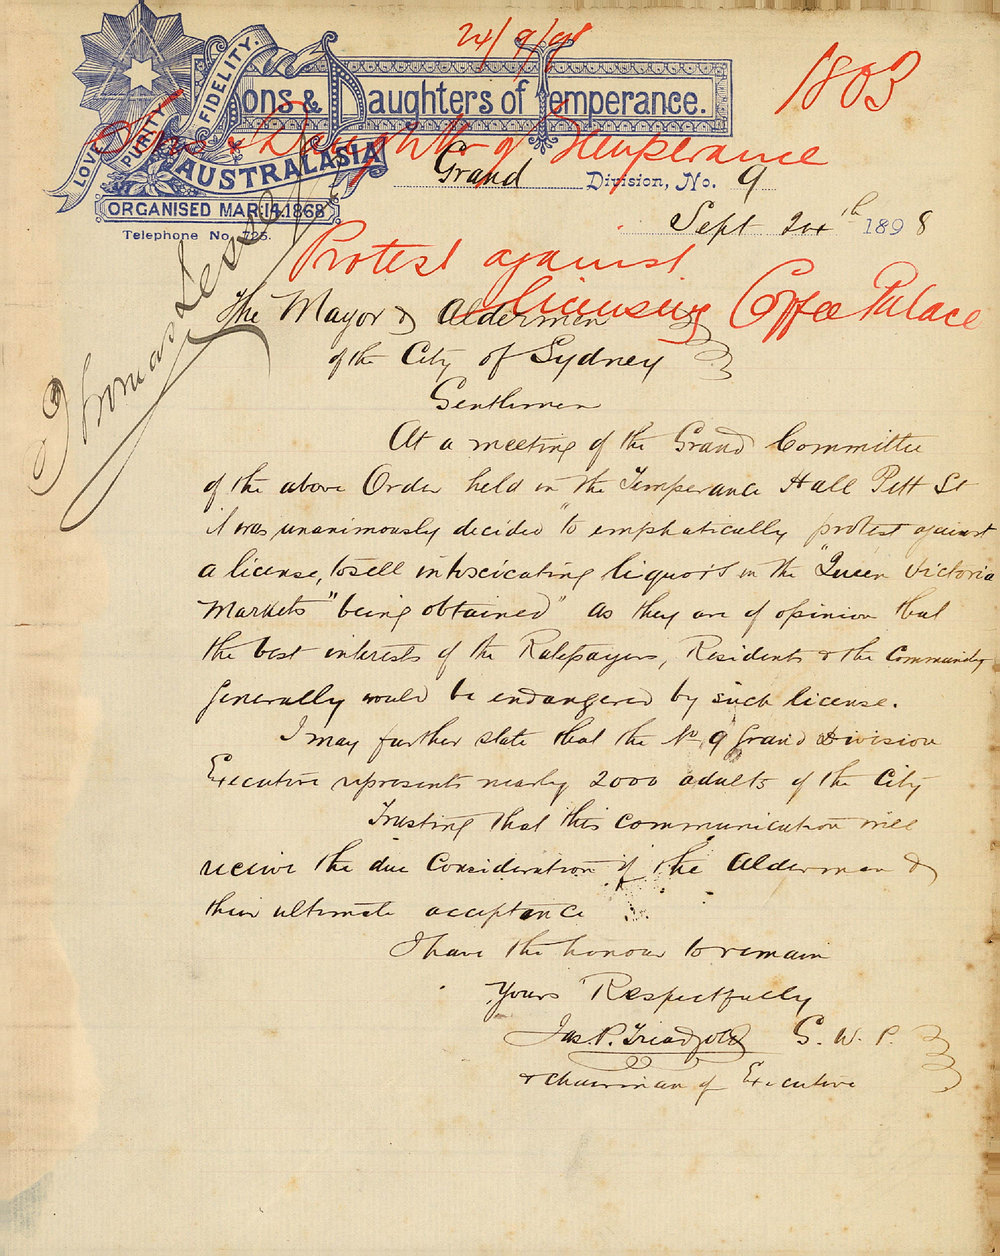 24/9/98
1803
LOVE PURITY FIDELITY.
Sons & Daughters of Temperance.
AUSTRALASIA
ORGANISED MAR:14.1868
Telephone No. 725.
Sons & Daughters of Temperance
Grand Division, No. 9
Sept 24th 1898
Protest against
licensing Coffee Palace
Thomas
The Mayor & Aldermen
of the City of Sydney
Gentlemen
At a meeting of the Grand Committee
of the above Order held in the Temperance Hall Pitt St
it was unanimously decided "to emphatically protest against
a license, to sell intoxicating liquors in the "Queen Victoria
Markets" being obtained" as they are of opinion that
the best interests of the Ratepayers, Residents & the Community
generally would be endangered by such license.
I may further state that the No 9 Grand Division
Executive represents nearly 2000 adults of the City
Trusting that this communication will
receive the due Consideration of the Aldermen &
their ultimate acceptance
I have the honour to remain
Yours Respectfully
Jas. P. Treadgold G. W. P.
& chairman of Executive